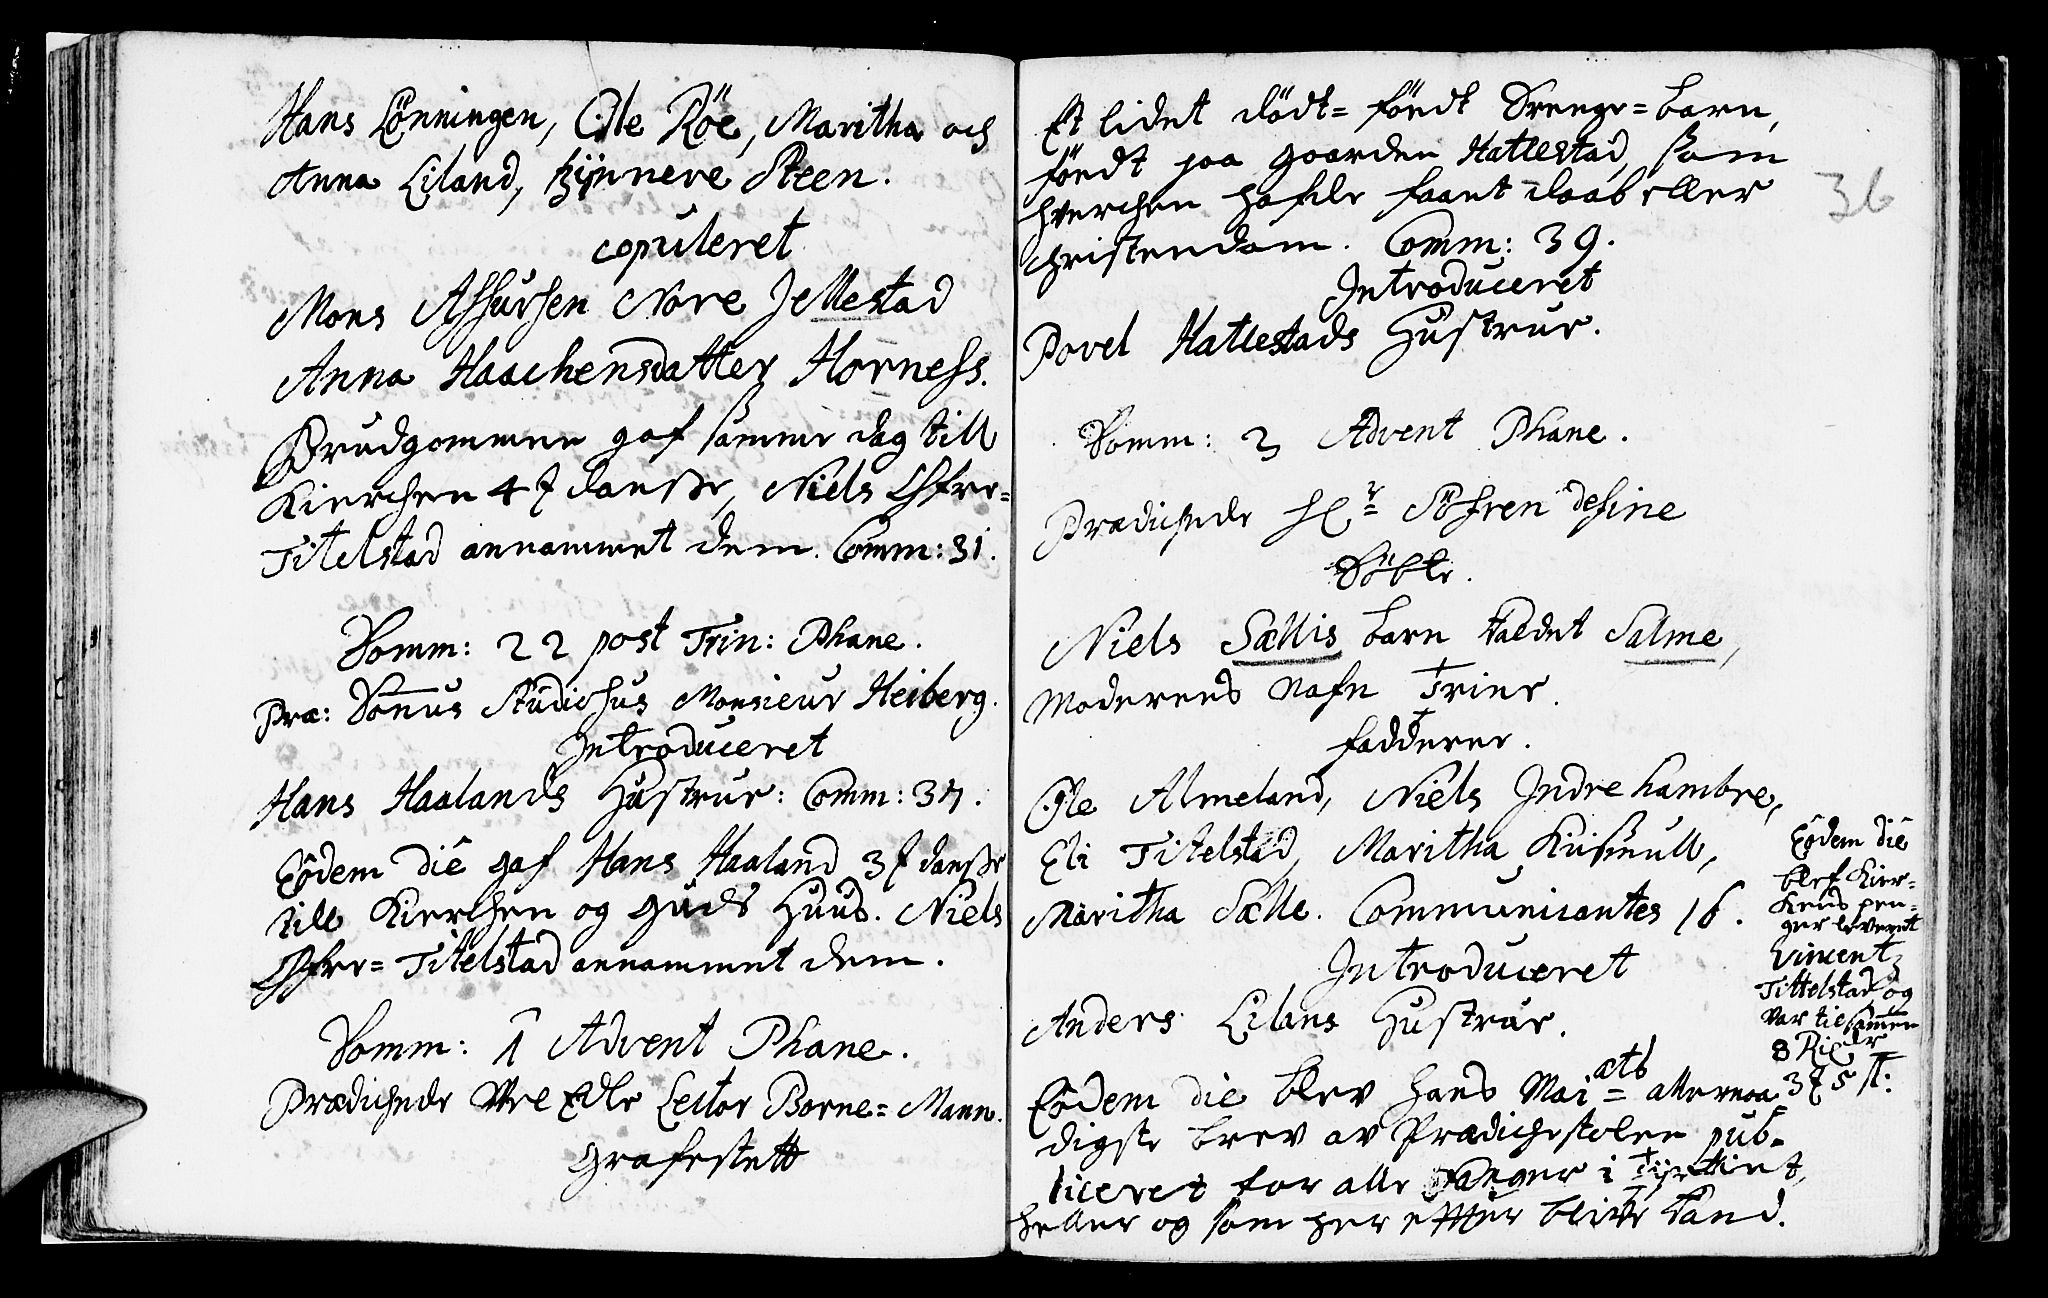 Hans Lönningen, Ole Röe, Maritha och
Anna Liland, Synneve Steen.
copuleret
Mons Assursen Nore Jellestad
Anna Haachensdatter Horness.
Brudgommen gaf samme dag till
Kierchen 4 danske, Niels Øfre=
Titelstad annammet dem. Comm: 31.
Domm: 22 post Trin: Phane.
Præ: Domus Studiosus Monsieur Heiberg.
Introduceret
Hans Haalands Hustrue: Comm: 37.
Eôdem diê gaf Hans Haaland 3 danske
till Kierchen og Guds Huus. Niels
Øfre= Titelstad annammet dem.
Domm: 1 Advent Phane.
Prædichede Vel Edle Lector Borne=Mann.
Grafestett
Et lidet dödt= födt Drenge=barn,
födt paa gaarden Hatlestad, som
hverchen hafde faaet daab eller
christendom. Comm: 39.
36
Introduceret
Povel Hatlestads Hustrue.
Domm: 3 Advent Phane.
Prædichede Hr Söfren desine
Döbte.
Niels Sællis barn kaldet Salme,
Moderens Nafn Trine.
fadderer.
Ole Almeland, Niels Indre hambre,
Eli Titelstad, Maritha
Maritha Sælle. Communicantes 16.
Introduceret
Anders Lilans Hustrue.
Eôdem die blev hans Mai=æts allernaa=
digste brev av Prædichestolen pub=
liceret for alle Fanger i Tyrkiet,
heller og som her effter blive tand.
Eôdem diê
blef Kier=
Kens pen=
ger leveret
Vincentz
Tittelstad og
var tilsammen
8 Rixdr
3 5 s: